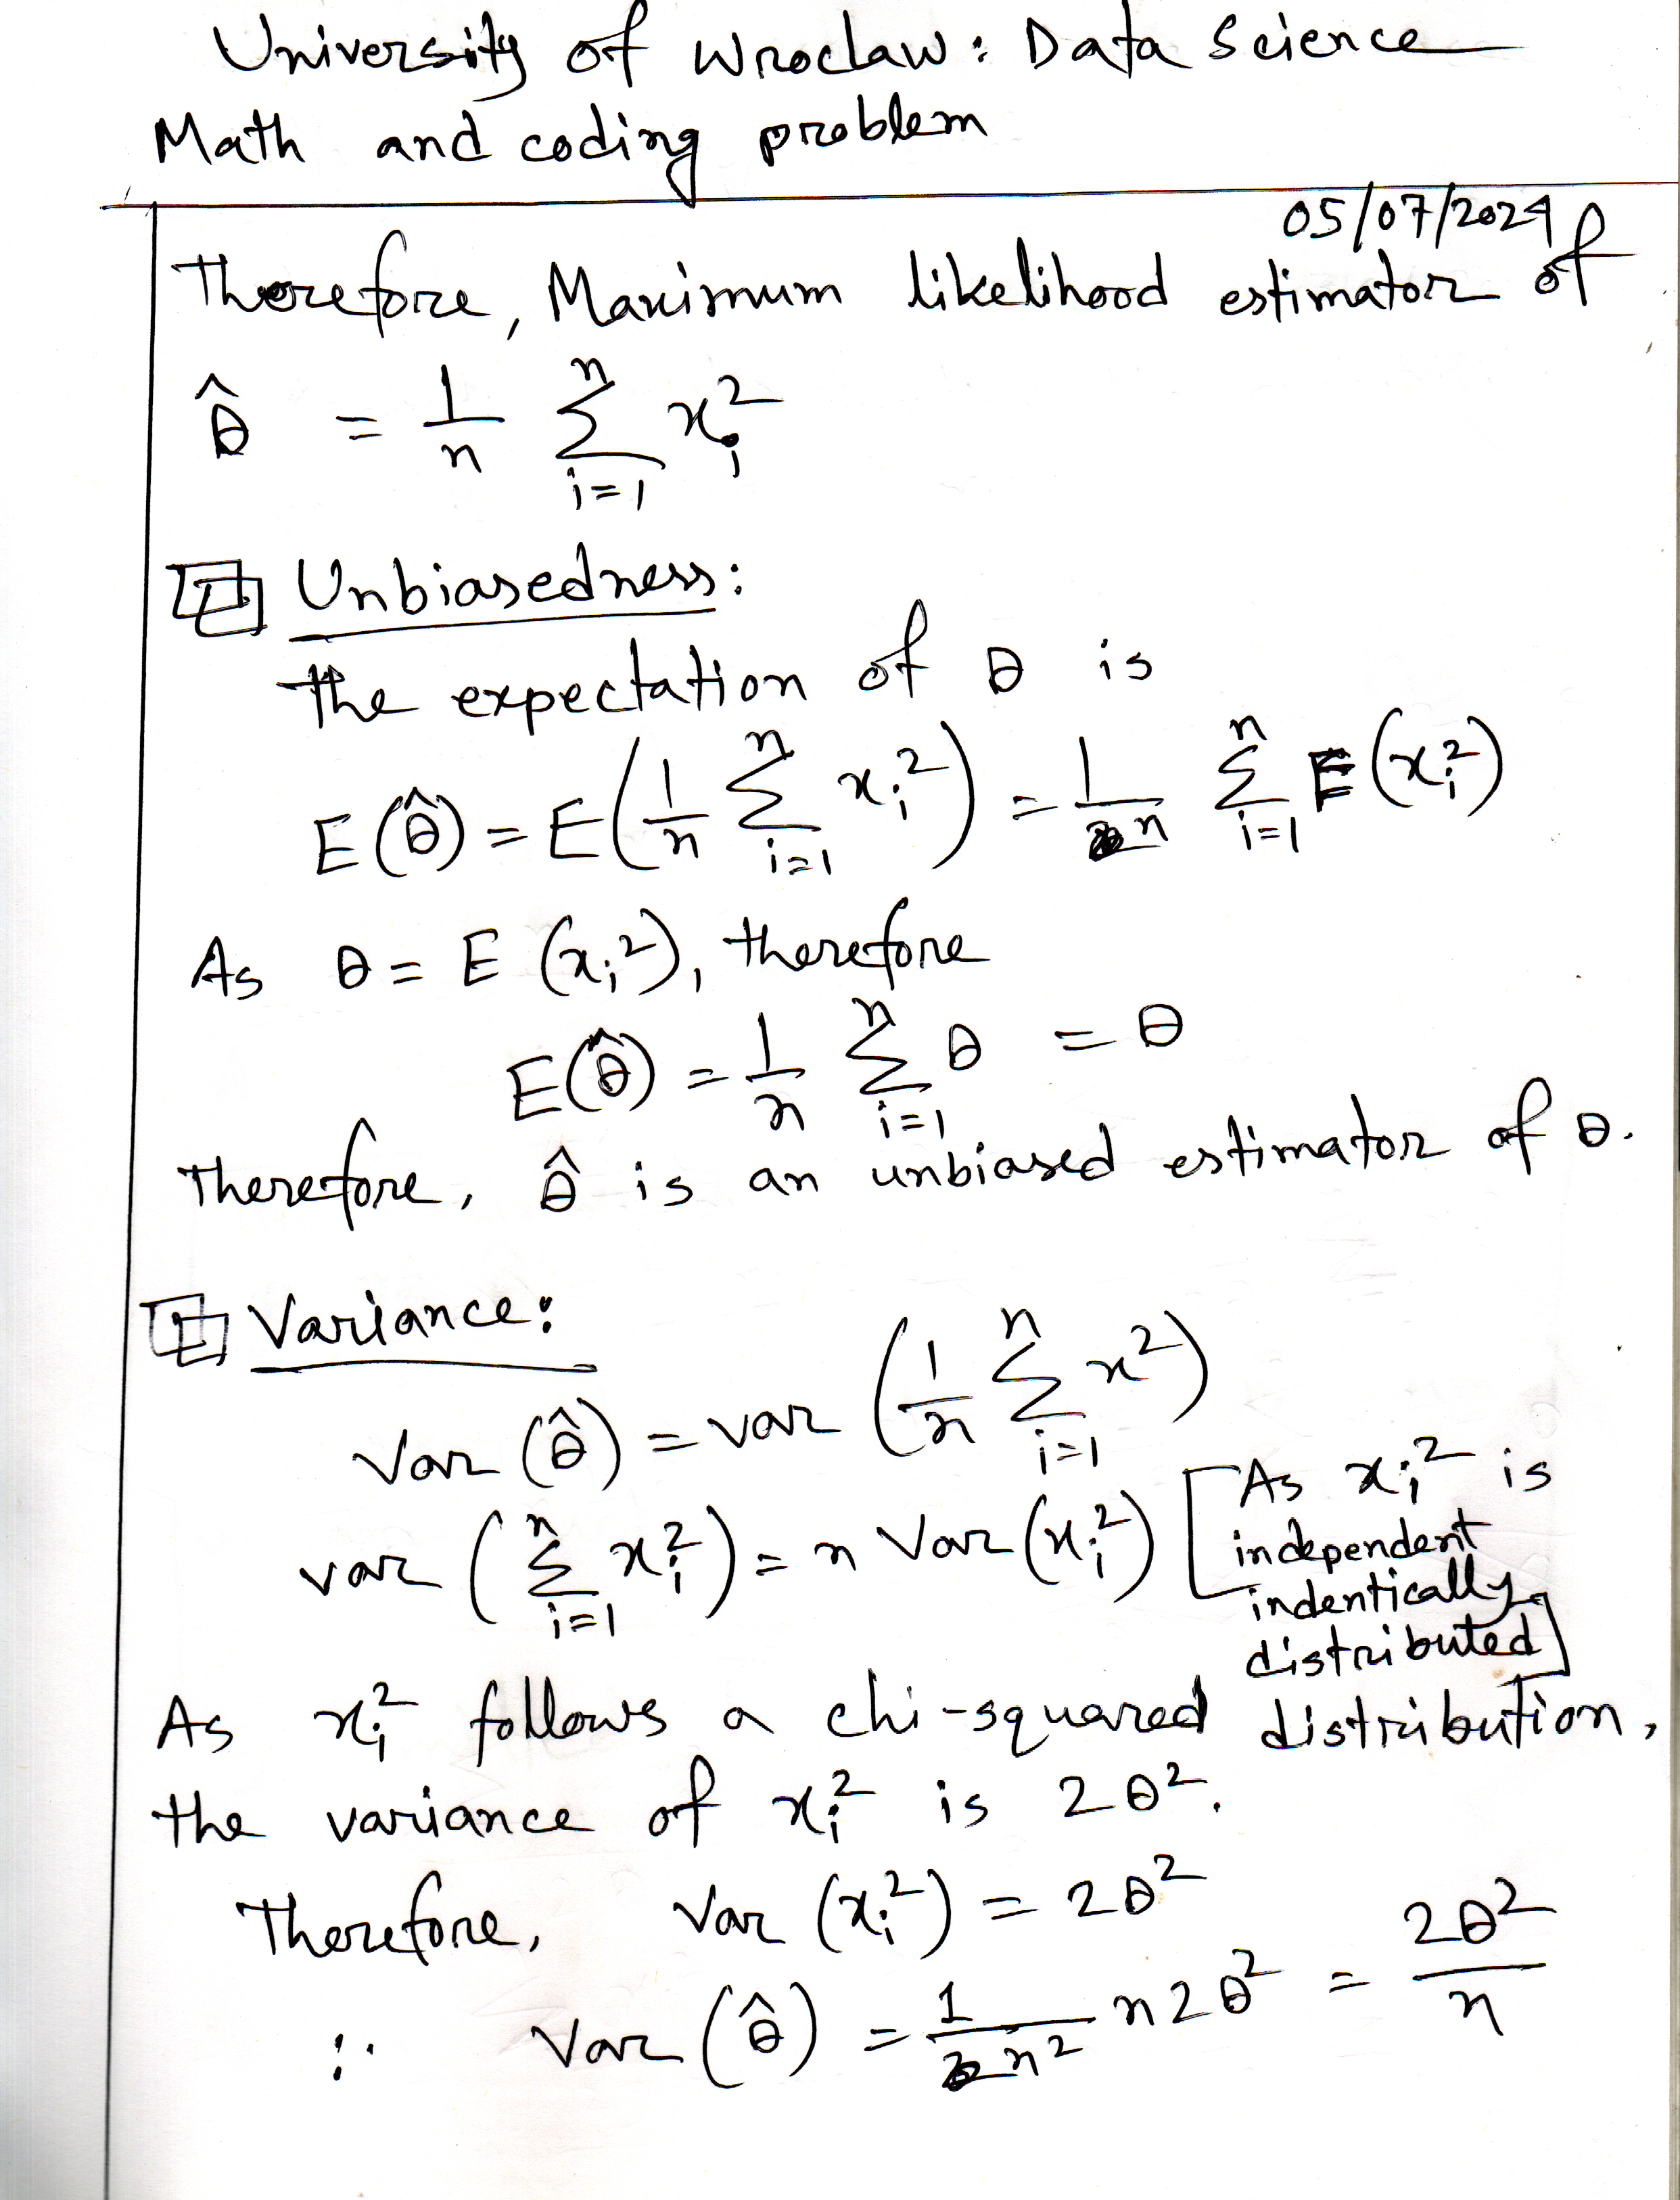 University of Wroclaw: Data Science
Math and coding problem
05/07/2024
Therefore, Maximum likelihood estimator of
θ̂ = 1/n Σ_{i=1}^{n} x_i^2
Unbiasedness:
the expectation of θ is
E(θ̂) = E(1/n Σ_{i=1}^{n} x_i^2) = 1/n Σ_{i=1}^{n} E(x_i^2)
As θ = E (x_i^2), therefore
E(θ̂) = 1/n Σ_{i=1}^{n} θ = θ
Therefore, θ̂ is an unbiased estimator of θ.
Variance:
Var (θ̂) = var (1/n Σ_{i=1}^{n} x^2)
var (Σ_{i=1}^{n} x_i^2) = n Var (x_i^2) [As x_i^2 is
independent
indentically
distributed]
As x_i^2 follows a chi-squared distribution,
the variance of x_i^2 is 2θ^2.
Therefore, Var (x_i^2) = 2θ^2
∴ Var (θ̂) = 1/n^2 n2θ^2 = 2θ^2/n